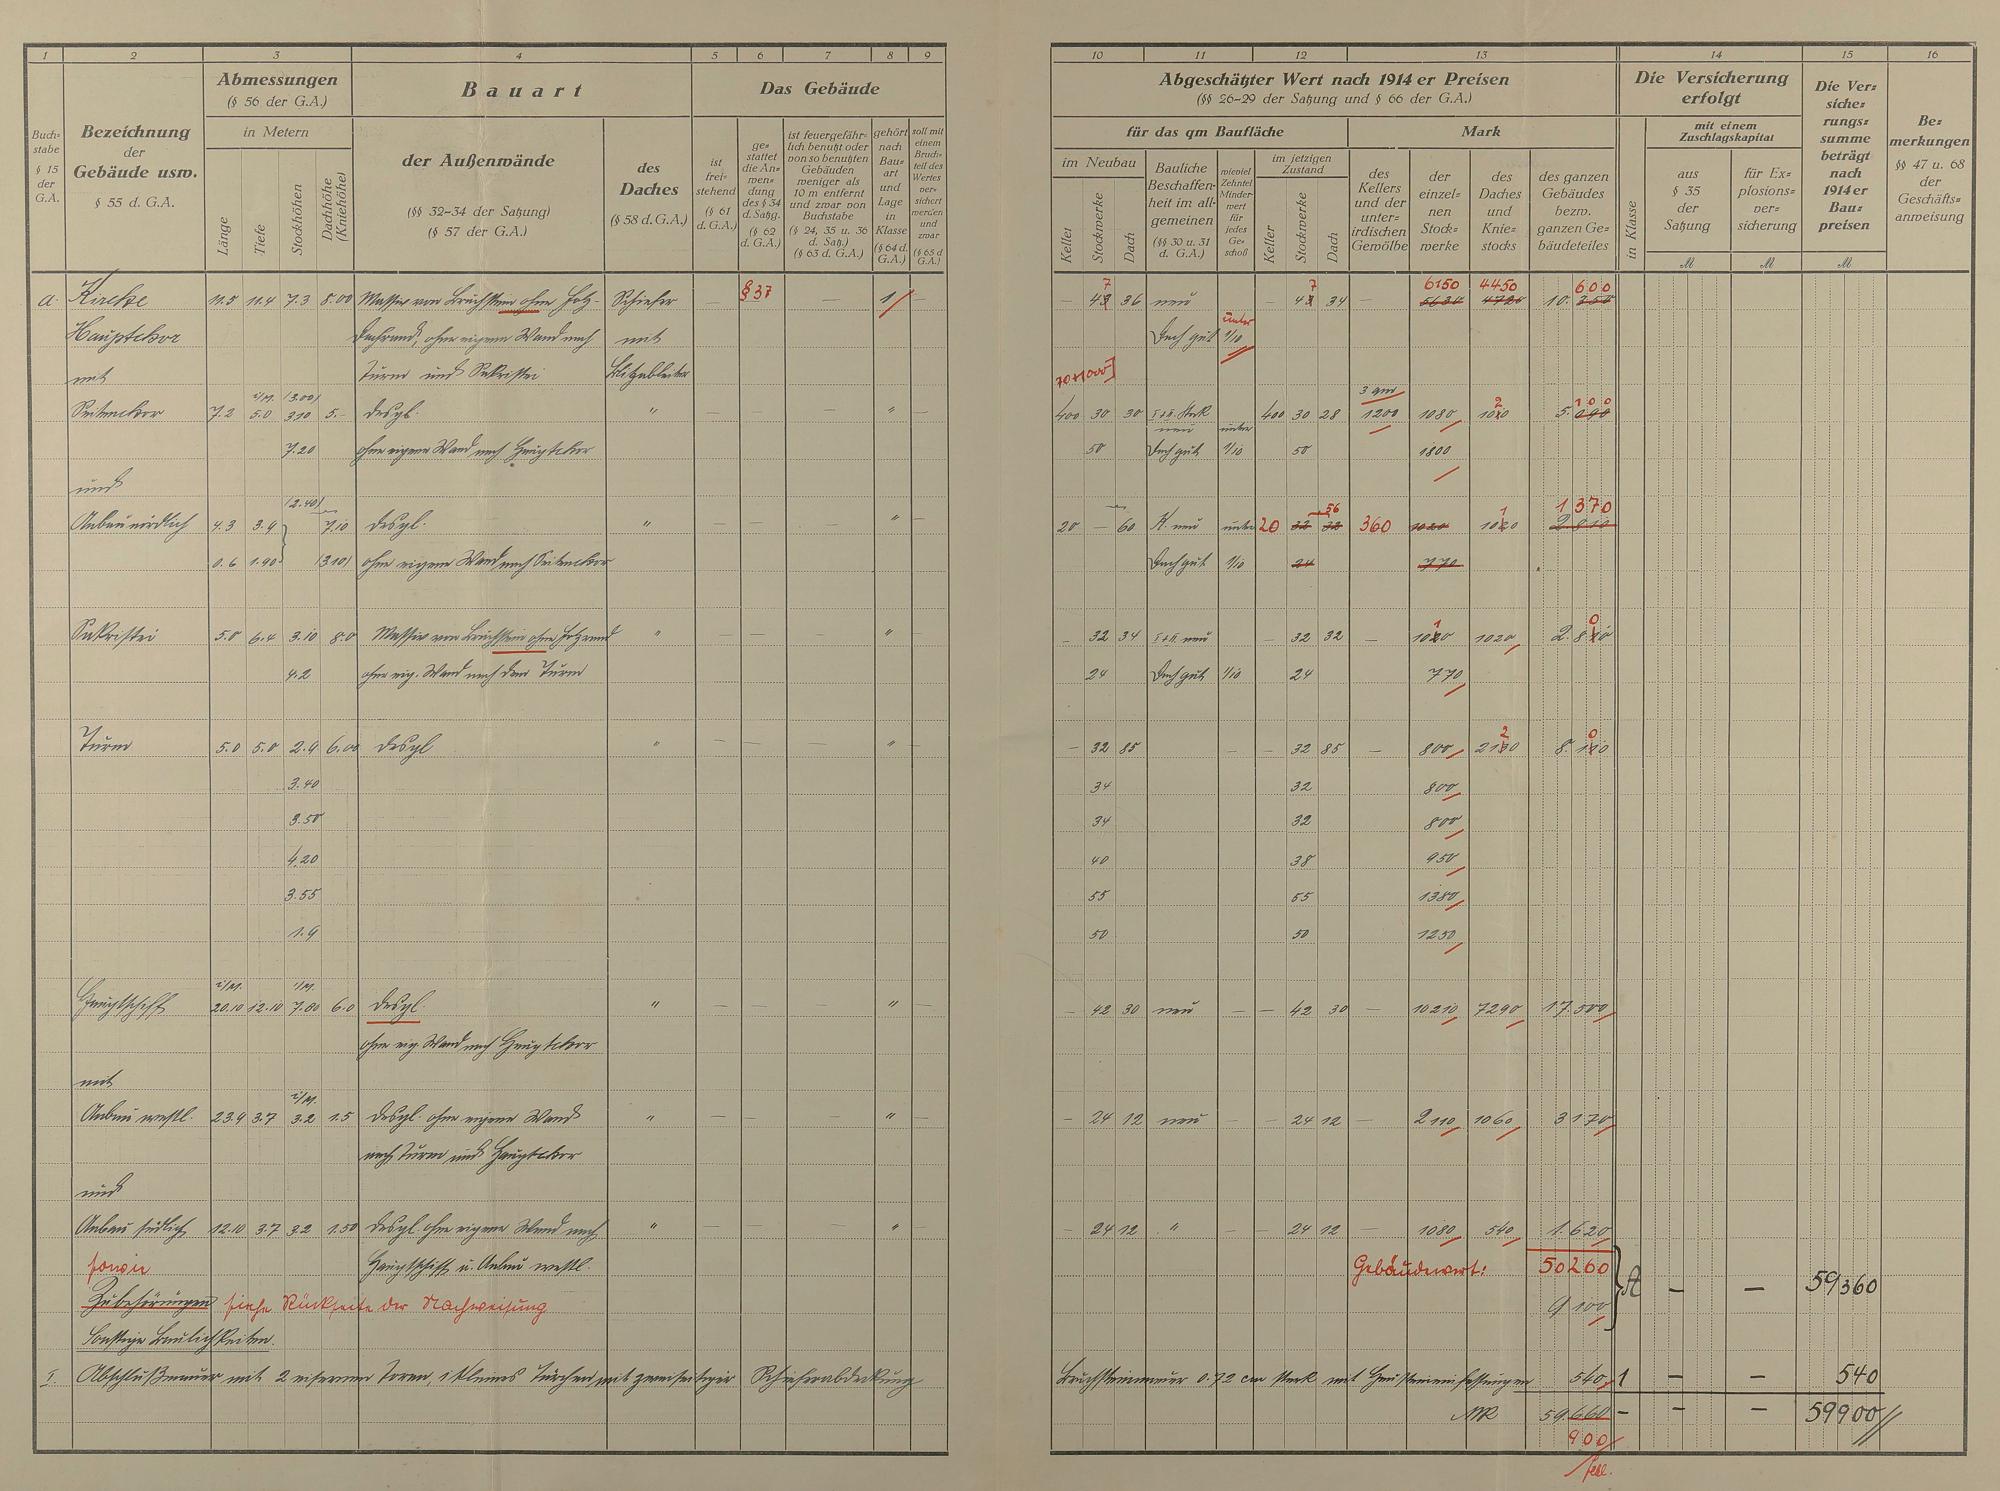 1 2 3 4 5 6 7 8 9
Buch=
stabe
§ 15
der
G.A.
Bezeichnung
der
Gebäude usw.
§ 55 d. G.A.
Abmessungen
(§ 56 der G.A.)
in Metern
Länge
Tiefe
Stockhöhen
Dachhöhe
(Kniehöhe)
Bauart
der Außenwände
(§§ 32–34 der Satzung)
(§ 57 der G.A.)
des
Daches
(§ 58 d. G.A.)
Das Gebäude
ist
frei=
stehend
(§ 61
d. G.A.)
ge=
stattet
die An=
wen=
dung
des § 34
d. Satzg.
(§ 62
d. G.A.)
ist feuergefähr=
lich benutzt oder
von so benutzten
Gebäuden
weniger als
10 m entfernt
und zwar von
Buchstabe
(§ 24, 35 u. 36
d. Satz.)
(§ 63 d. G.A.)
gehört
nach
Bau=
art
und
Lage
in
Klasse
(§ 64 d.
G.A.)
soll mit
einem
Bruch=
teil des
Wertes
ver=
sichert
werden
und
zwar
(§ 65 d
G.A.)
a. Kirche 11.5 11.4 7.3 8.00 Massiv von Bruchstein ohne Holz- Schiefer — § 37 — 1 —
Hauptchor Dachrand, ohne eigene Wand nach mit
mit Turm und Sakristei Blitzableiter
i/M. (3.00)
Seitenchor 7.2 5.0 3.10 5.- desgl. " — — — " —
7.20 ohne eigene Wand nach Hauptchor
und
(2.40)
Anbau nördlich 4.3 3.4 7.10 desgl. " — — — " —
0.6 1.90 (3.10) ohne eigene Wand nach Seitenchor
Sakristei 5.0 6.4 3.10 8.0 Massiv von Bruchstein ohne Holzrand " — — — " —
4.2 ohne eig. Wand nach dem Turm
Turm 5.0 5.0 2.4 6.00 desgl " — — — " —
3.40
3.50
4.20
3.55
1.9
i/M. i/M.
Hauptschiff 20.10 12.10 7.80 6.0 desgl " — — — " —
ohne eig. Wand nach Hauptchor
mit
i/M.
Anbau westl. 23.9 3.7 3.2 1.5 desgl. ohne eigene Wand " — — — " —
nach Turm und Hauptchor
und
Anbau südlich 12.10 3.7 3.2 1.50 desgl. ohne eigene Wand nach " — — — " —
sowie Hauptschiff u. Anbau westl.
Zubehörungen siehe Rückseite der Nachweisung
Sonstige Baulichkeiten.
1. Abschlußmauer mit 2 eisernen Toren, 1 kleines Türchen mit zweiseitiger Schieferabdeckung
10 11 12 13 14 15 16
Abgeschätzter Wert nach 1914 er Preisen
(§§ 26–29 der Satzung und § 66 der G.A.)
für das qm Baufläche
Mark
im Neubau
Keller
Stockwerke
Dach
Bauliche
Beschaffen=
heit im all=
gemeinen
(§§ 30 u. 31
d. G.A.)
wieviel
Zehntel
Minder=
wert
für
jedes
Ge=
schoß
im jetzigen
Zustand
Keller
Stockwerke
Dach
des
Kellers
und der
unter=
irdischen
Gewölbe
der
einzel=
nen
Stock=
werke
des
Daches
und
Knie=
stocks
des ganzen
Gebäudes
bezw.
ganzen Ge=
bäudeteiles
Die Versicherung
erfolgt
in Klasse
mit einem
Zuschlagskapital
aus
§ 35
der
Satzung
für Ex=
plosions=
ver=
sicherung
Die Ver=
siche=
rungs=
summe
beträgt
nach
1914 er
Bau=
preisen
Be=
merkungen
§§ 47 u. 68
der
Geschäfts=
anweisung
M M M
7 7 6150 4450 600
— 43 36 neu — 43 34 — 5630 4720 10.350
unter
Dach gut 1/10
3 qm 2 100
400 30 30 I+II. Stock 400 30 28 1200 1080 1010 5.090
neu unter
50 Dach gut 1/10 50 1800
56 1 1370
20 — 60 K. neu unter 20 32 32 360 1020 1020 2.810
Dach gut 1/10 24 770
1 0
— 32 34 I+II. neu — 32 32 — 1020 1020 2.810
24 Dach gut 1/10 24 770
2 0
— 32 85 — — 32 85 — 800 2130 8.110
34 32 800
34 32 800
40 38 950
55 55 1380
50 50 1250
— 42 30 neu — — 42 30 — 10210 7290 17.500
— 24 12 neu — — 24 12 — 2110 1060 3170
— 24 12 " — — 24 12 — 1080 540 1.620
Gebäudewert: 50260
A — — 59360
9 100
Bruchsteinmauer 0.72 cm stark mit Hausteineinfassungen 540 1 — — 540
59.660 — — — 59900
900